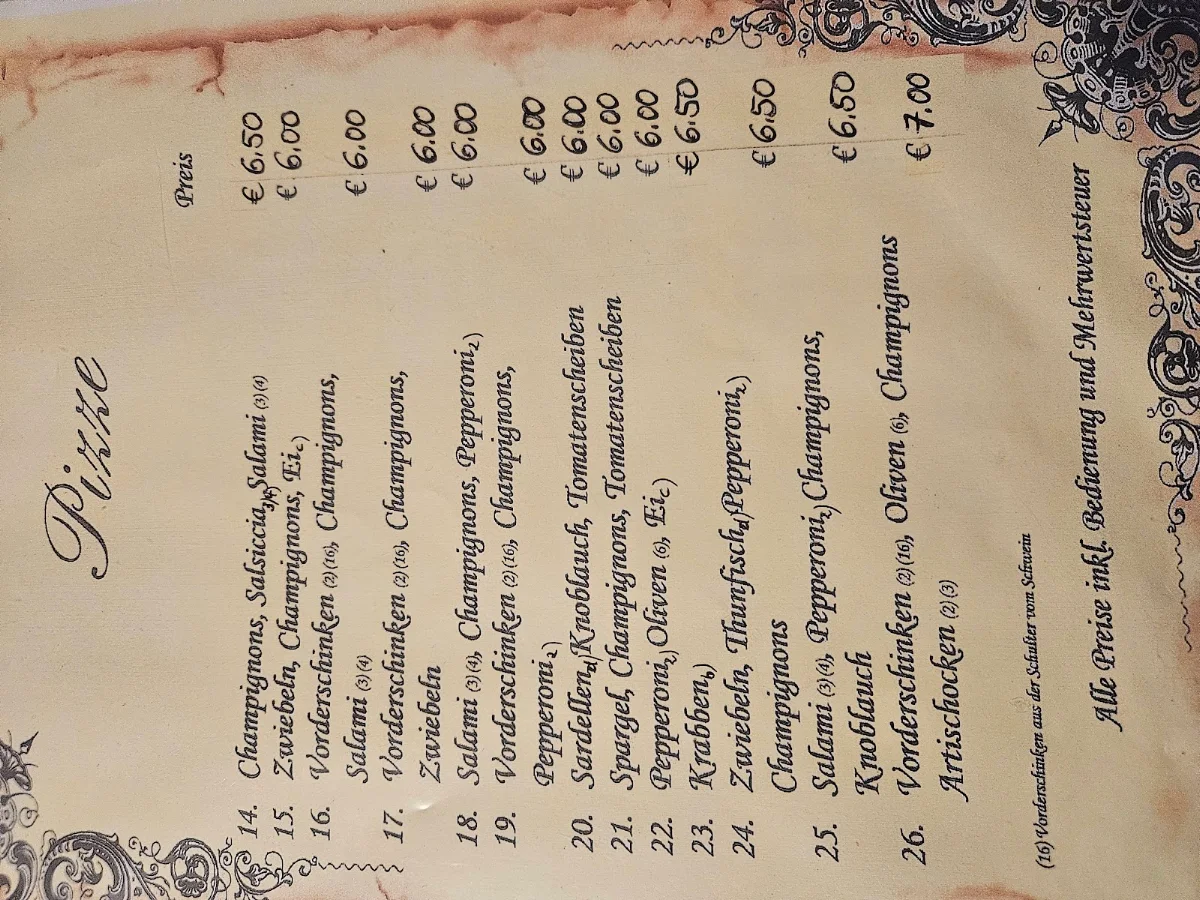 Pizze
Preis
14. Champignons, Salsiccia 3)4) Salami (3)(4) € 6,50
15. Zwiebeln, Champignons, Ei c) € 6,00
16. Vorderschinken (2)(16), Champignons,
Salami (3)(4) € 6,00
17. Vorderschinken (2)(16), Champignons,
Zwiebeln € 6,00
18. Salami (3)(4), Champignons, Pepperoni 2) € 6,00
19. Vorderschinken (2)(16), Champignons,
Pepperoni 2) € 6,00
20. Sardellen d) Knoblauch, Tomatenscheiben € 6,00
21. Spargel, Champignons, Tomatenscheiben € 6,00
22. Pepperoni 2) Oliven (6), Ei c) € 6,00
23. Krabben b) € 6,50
24. Zwiebeln, Thunfisch d) Pepperoni 2)
Champignons € 6,50
25. Salami (3)(4), Pepperoni 2) Champignons,
Knoblauch € 6,50
26. Vorderschinken (2)(16), Oliven (6), Champignons
Artischocken (2)(3) € 7,00
(16) Vorderschinken aus der Schulter vom Schwein
Alle Preise inkl. Bedienung und Mehrwertsteuer